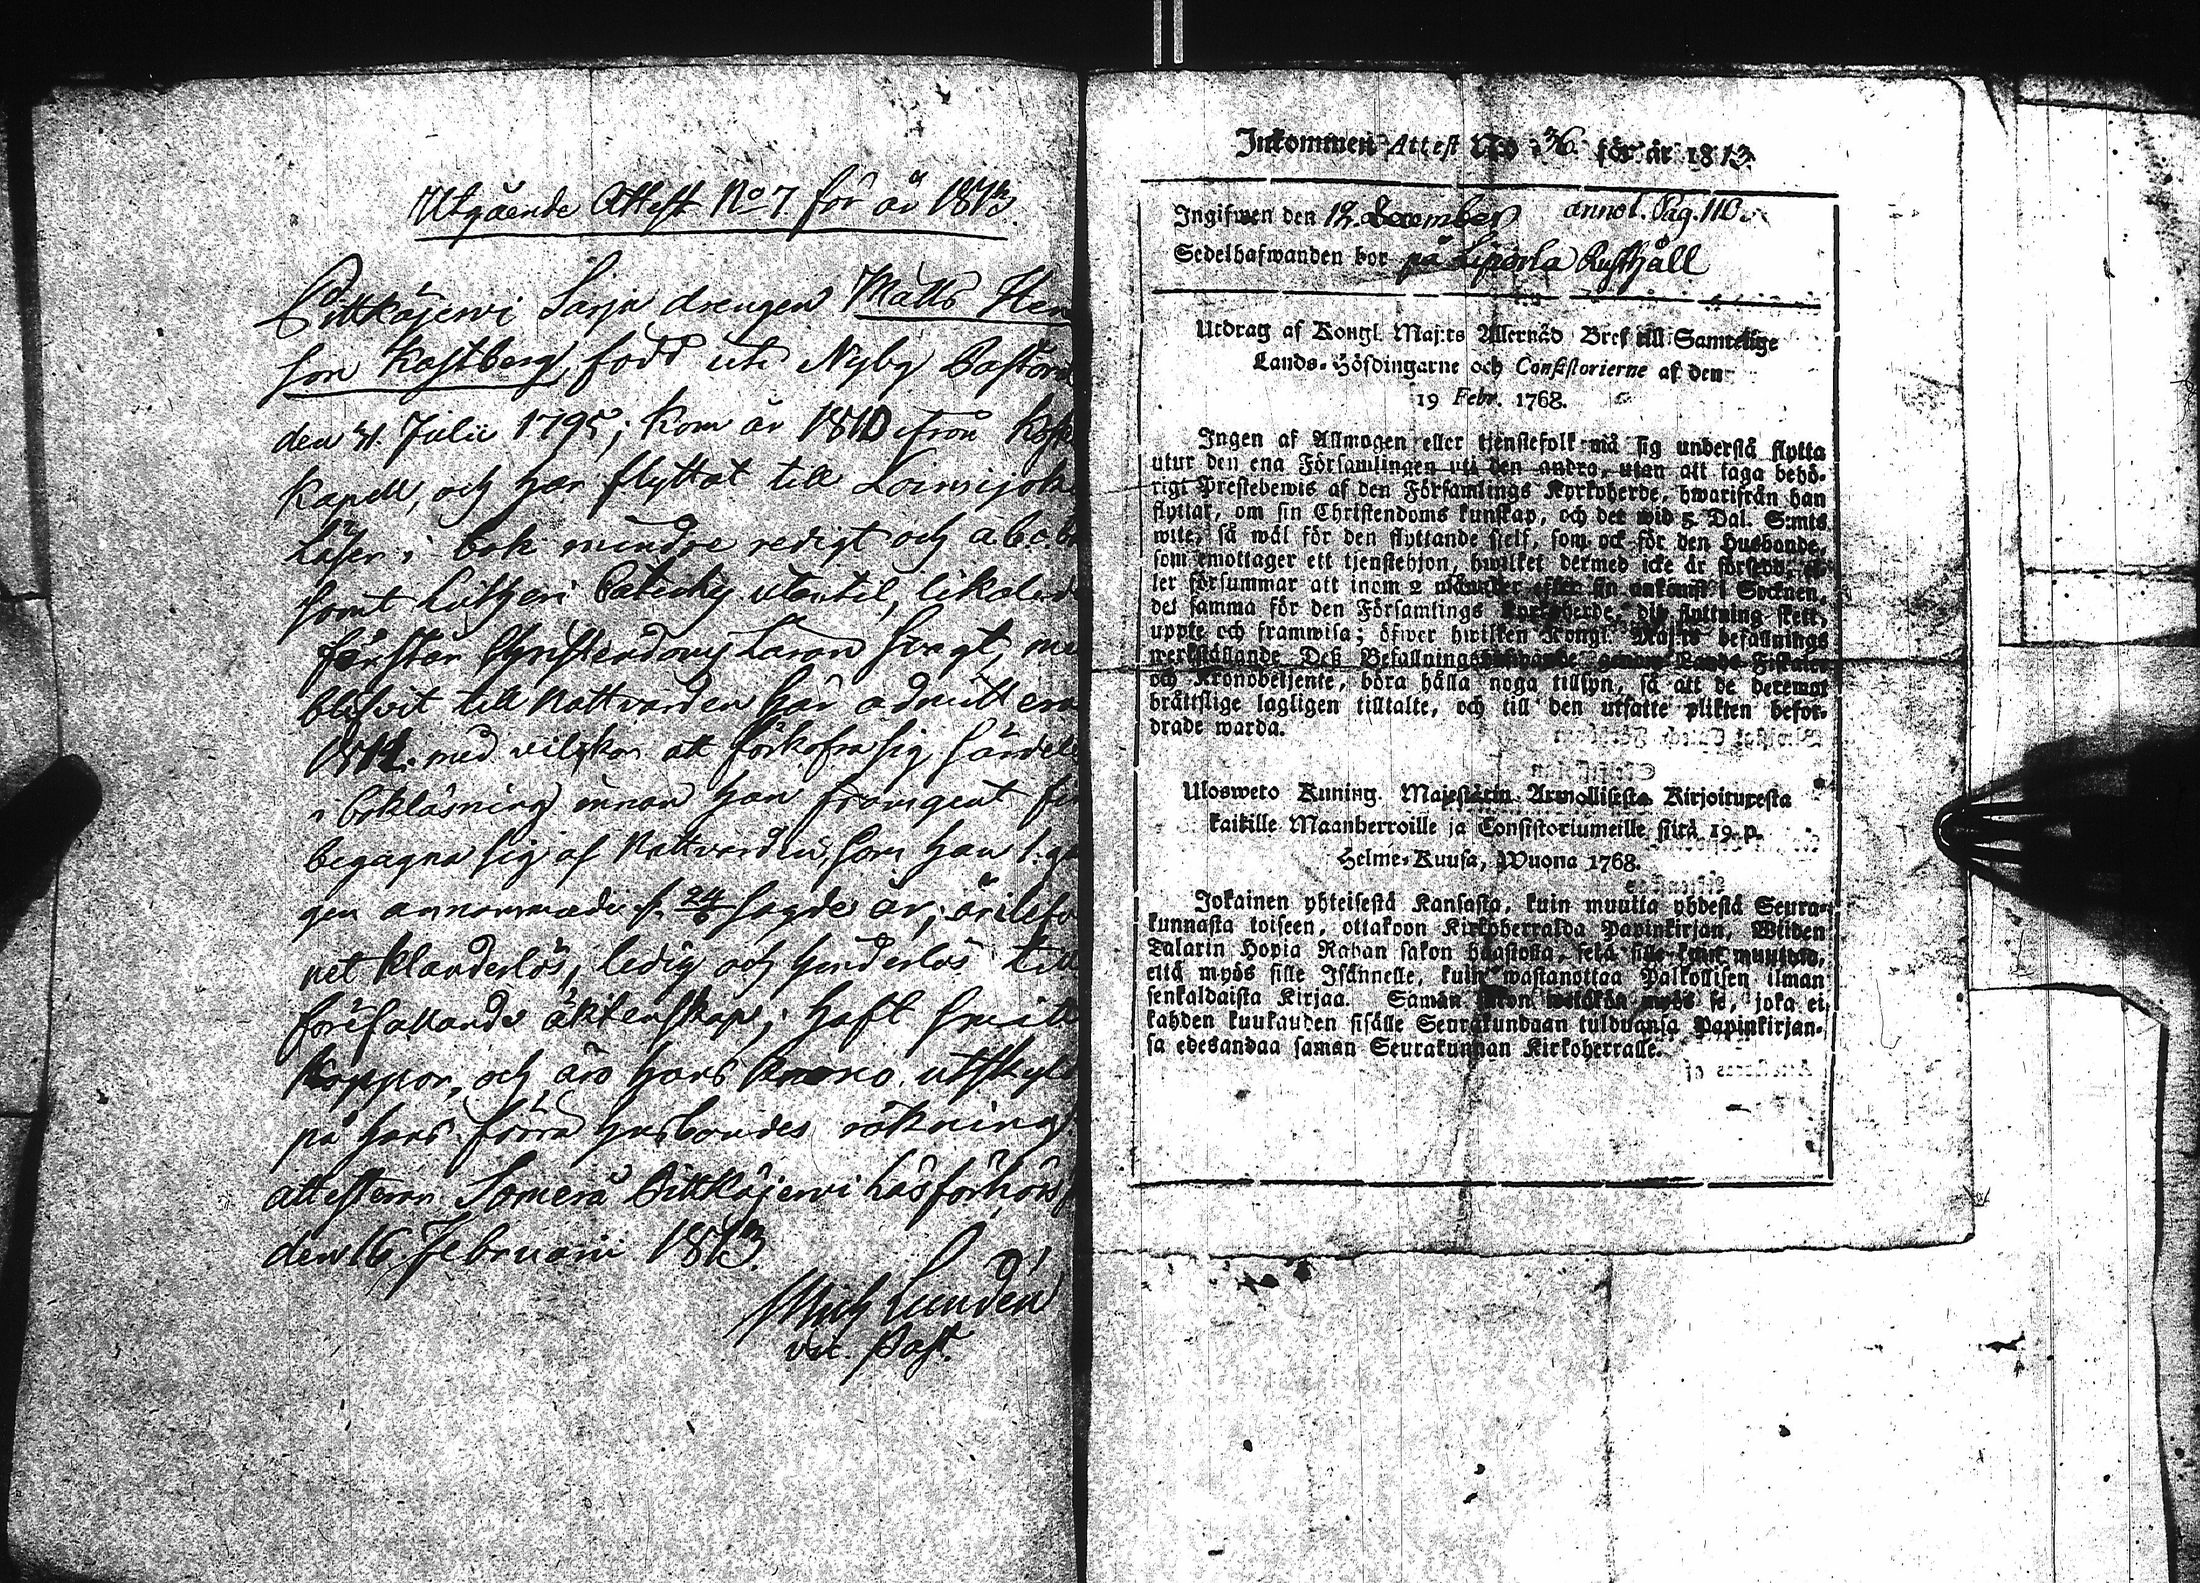 Utgående Attest No 7. för år 1813.
Pittkäjerwi Sarja drengen Matts Hen
son Kastberg, född uti Nyby Pastorat
den 21. Julii 1795; kom år 1810 ifrån Koski
Kapell, och har flyttat till Loimijoki
läser i bok mindre redigt och a.b.c.b
samt Lutheri Cateches utantil, likaledes
förstår Christendoms Läran svagt, men
blifvit till Nattvarden här admitterad
1812. med vilkor att förkofra sig särdeles
i bokläsning innan han framgent får
begagna sig af Nattvarden, som han 1. gån
gen annammade d. 24/6 sagde år; är i lefver
net klanderlös, ledig och hinderlös till
förefallande äktenskap; haft smitt
koppor, och äro hans krono utskylder
på hans förra husbondes räkning
attesteras Somero Pittkäjerwi läsförhör
den 16. Februarii 1813.
Mich Lundén
vic. Past.
Inkommen Attest No 76. för år 1813
Ingifwen den 12. december annot. Pag. 110.
Sedelhafwanden bor på Liporla Rusthåll
Utdrag af Kongl. Maj:ts Allernåd Bref till Samtelige
Lands-Höfdingarne och Consistorierne af den
19 Febr. 1768.
Ingen af Allmogen eller tjenstefolk må sig understå flytta
utur den ena Församlingen uti den andra, utan att taga behö-
rigt Prestebewis af den Församlings Kyrkoherde, hwarifrån han
flyttar, om sin Christendoms kunskap, och det wid 5 Dal. S:mts
wite, så wäl för den flyttande sjelf, som ock för den Husbonde,
som emottager ett tjenstehjon, hwilket dermed icke är försedt, el-
ler försummar att inom 2 månader efter sin ankomst i Socknen,
det samma för den Församlings Kyrkoherde, dit flyttning skett,
uppte och framwisa; öfwer hwilken Kongl. Maj:ts befallnings
werkställande Deß Befallningshafwande genom Lands Fiskaler
och Kronobetjente, böra hålla noga tillsyn, så att de deremot
brättslige lagligen tilltalte, och till den utsatte plikten befor-
drade warda.
Ulosweto Kuning. Majestätin Armollisesta Kirjoituxesta
kaikille Maanherroille ja Consistoriumeille siitä 19. p.
Helme-Kuusa, Wuona 1768.
Jokainen yhteisestä Kansasta, kuin muutta yhdestä Seura-
kunnasta toiseen, ottakoon Kirkoherralda Papinkirjan, Wiiden
Talarin Hopia Rahan sakon haastolla, sekä sille kuin muuttaa,
että myös sille Isännelle, kuin wastanottaa Palkollisen ilman
senkaldaista Kirjaa. Saman sakon wetäkän myös se, joka ei
kahden kuukauden sisälle Seurakundaan tulduansa Papinkirjan-
sa edesandaa saman Seurakunnan Kirkoherralle.